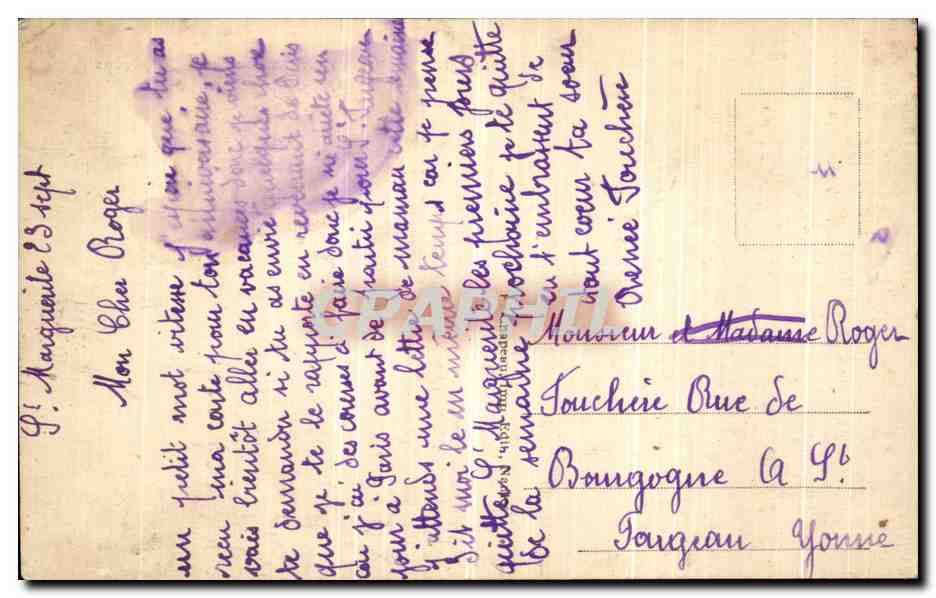 St Marguerite 23 sept
Mon Cher Roger
un petit mot vitesse que tu as
reçu ma carte pour ton anniversaire, je
vais bientôt aller en vacances donc je viens
te demander si tu as envie quelque chose
que je te le rapporte en revenant de Paris
car j'ai des courses à faire donc je m'arrête un
jour à Paris avant de partir pour
J'attends une lettre de maman cette semaine
Dit moi le en même temps car je pense
quitter St Marguerite les premiers jours
de la semaine prochaine je te quitte
en t'embrassant de
tout coeur ta soeur
Renée Foucherè
Monsieur et Madame Roger
Foucherè Rue de
Bourgogne A St
Fargeau Yonne
CPAPHIL